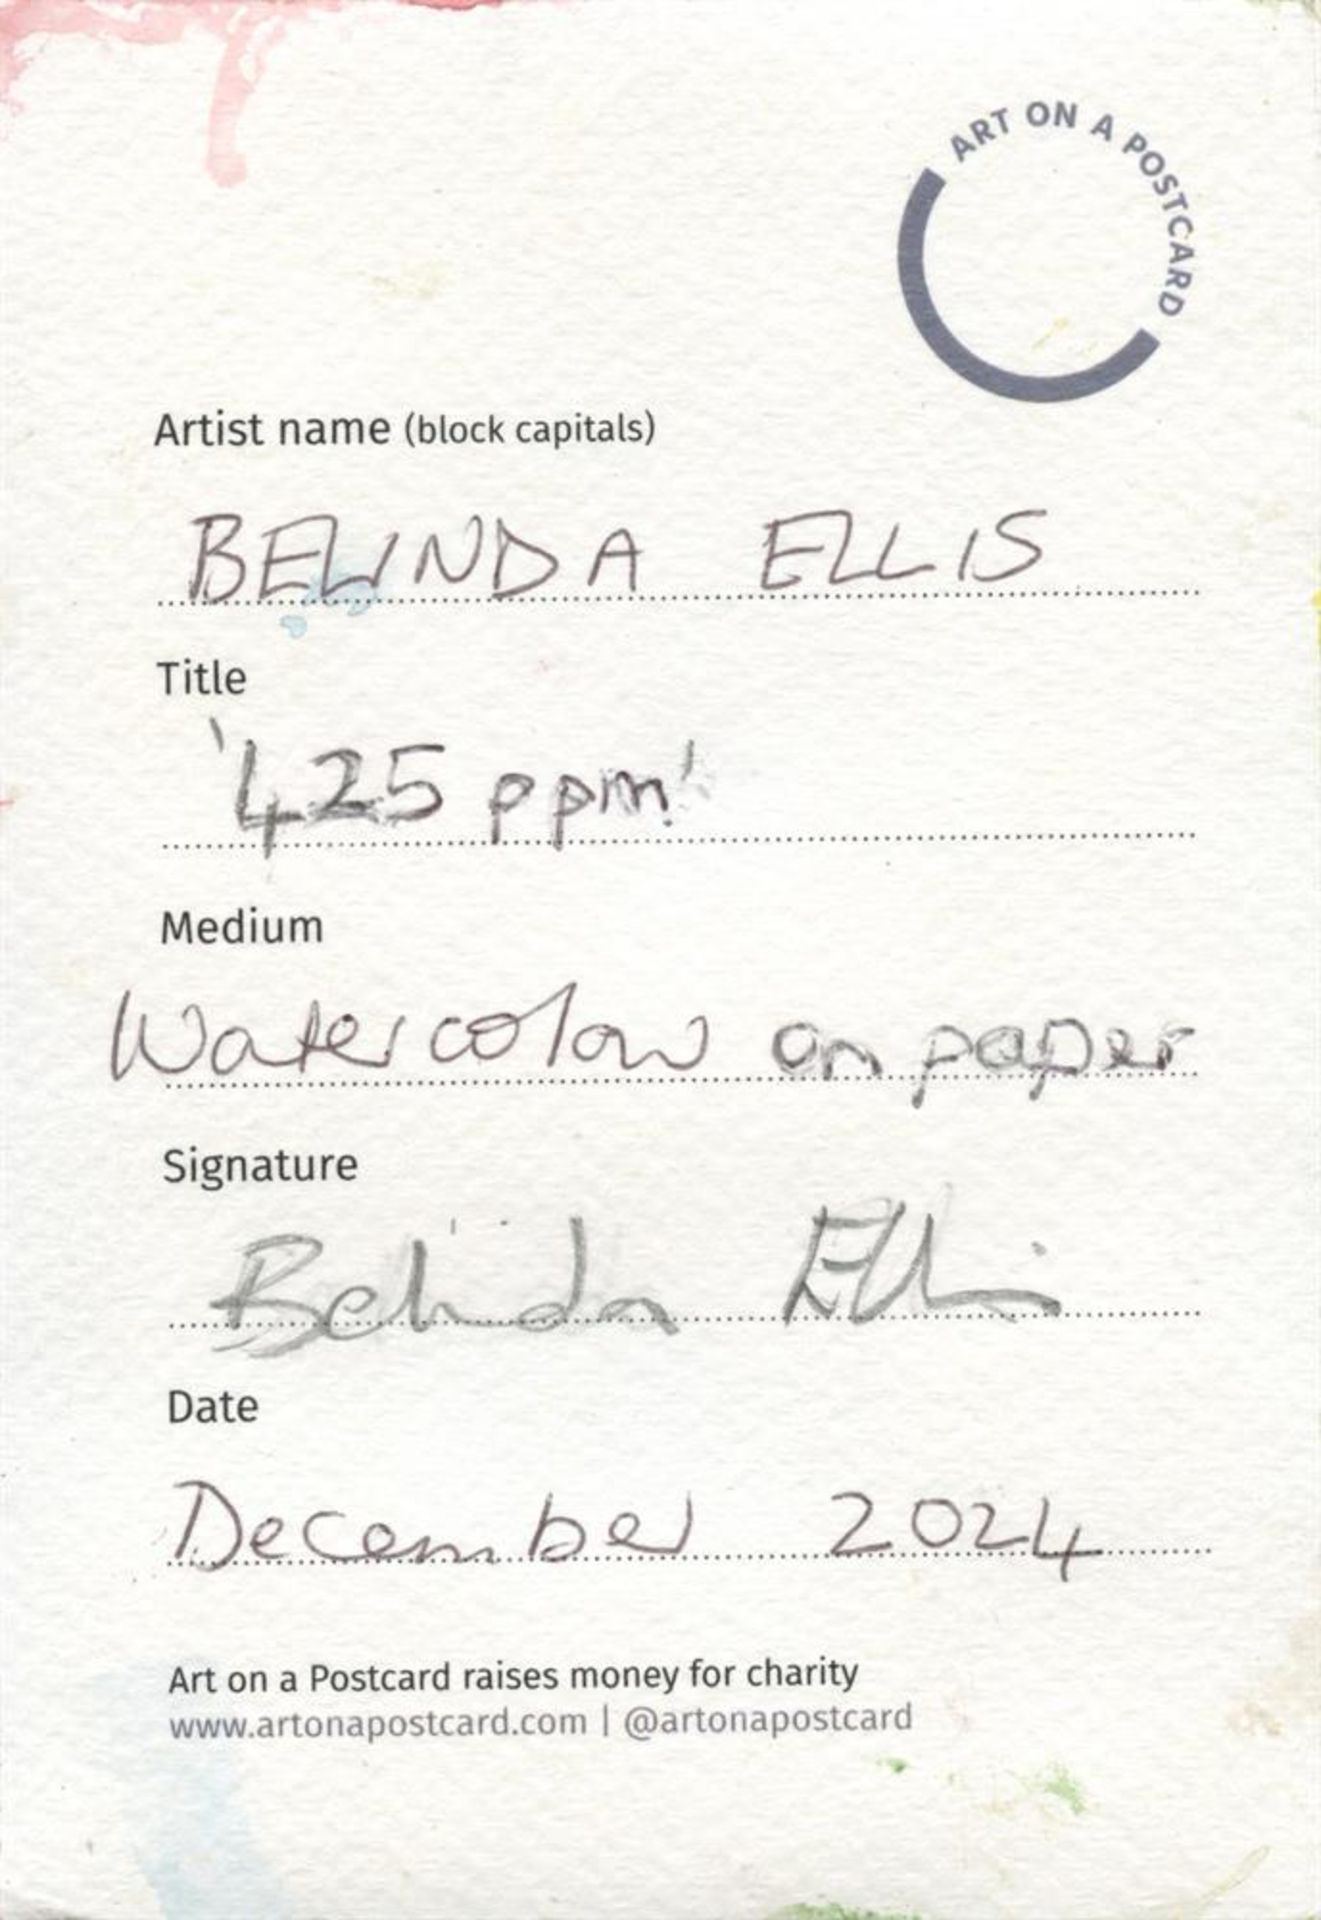 ART ON A POSTCARD
Artist name (block capitals)
BELINDA ELLIS
Title
'425 ppm'
Medium
Watercolour on paper
Signature
Belinda Ellis
Date
December 2024
Art on a Postcard raises money for charity
www.artonapostcard.com | @artonapostcard